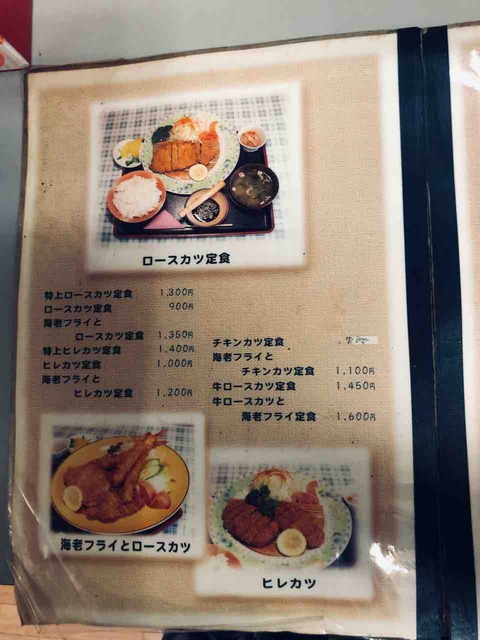 ロースカツ定食
特上ロースカツ定食 1,300円
ロースカツ定食 900円
海老フライと
ロースカツ定食 1,350円
特上ヒレカツ定食 1,400円
ヒレカツ定食 1,000円
海老フライと
ヒレカツ定食 1,200円
チキンカツ定食
海老フライと
チキンカツ定食 1,100円
牛ロースカツ定食 1,450円
牛ロースカツと
海老フライ定食 1,600円
海老フライとロースカツ
ヒレカツ